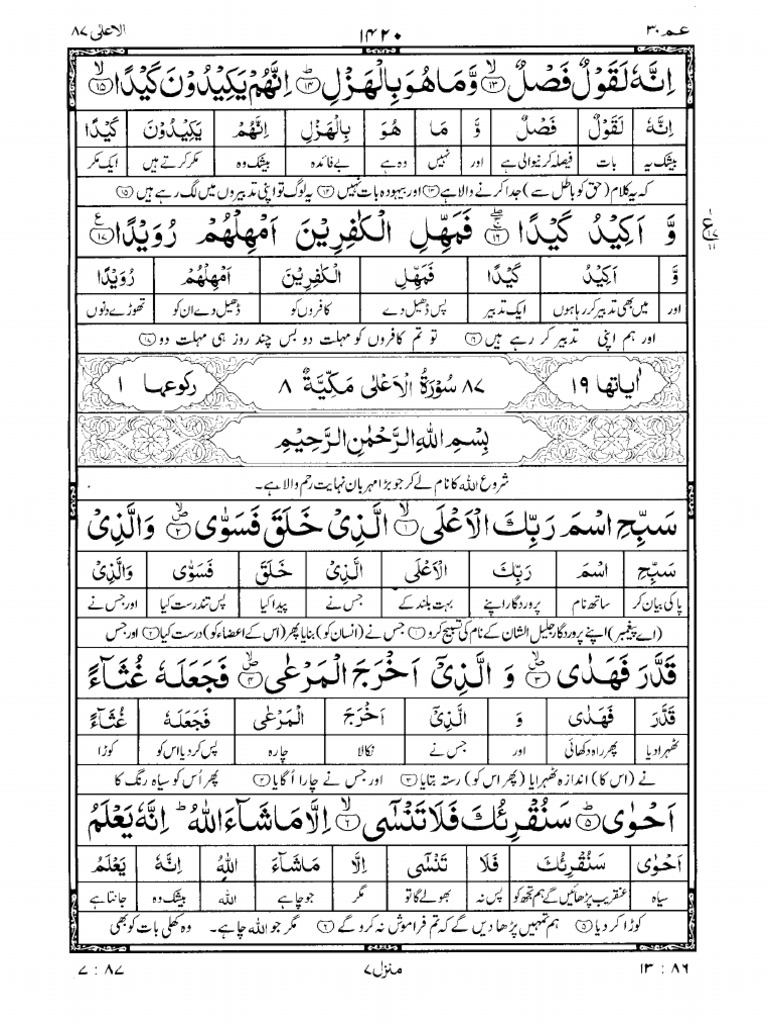 عـم ٣٠ ١٤٢٠ الاعلى ٨٧
اِنَّهٗ لَقَوْلٌ فَصْلٌ ۙ‏﴿۱۳﴾ وَّمَا هُوَ بِالْهَزْلِ ؕ‏﴿۱۴﴾ اِنَّهُمْ يَكِيْدُوْنَ كَيْدًا ۙ‏﴿۱۵﴾
اِنَّهٗ لَقَوْلٌ فَصْلٌ وَّ مَا هُوَ بِالْهَزْلِ اِنَّهُمْ يَكِيْدُوْنَ كَيْدًا
بیشک یہ بات فیصلہ کرنیوالی ہے اور نہیں وہ ہے بے فائدہ بیشک وہ مکر کرتے ہیں ایک مکر
کہ یہ کلام (حق کو باطل سے) جدا کرنے والا ہے ﴿۱۳﴾ اور بیہودہ بات نہیں ﴿۱۴﴾ یہ لوگ تو اپنی تدبیروں میں لگ رہے ہیں ﴿۱۵﴾
وَّ اَكِيْدُ كَيْدًا ۖۚ‏﴿۱۶﴾ فَمَهِّلِ الْكٰفِرِيْنَ اَمْهِلْهُمْ رُوَيْدًا ﴿۱۷﴾ ع
وَّ اَكِيْدُ كَيْدًا فَمَهِّلِ الْكٰفِرِيْنَ اَمْهِلْهُمْ رُوَيْدًا
اور میں بھی تدبیر کر رہا ہوں ایک تدبیر پس ڈھیل دے کافروں کو ڈھیل دے ان کو تھوڑے دنوں
اور ہم اپنی تدبیر کر رہے ہیں ﴿۱۶﴾ تو تم کافروں کو مہلت دو بس چند روز ہی مہلت دو ﴿۱۷﴾
اٰیاتها ١٩ ٨٧ سُوْرَةُ الْاَعْلٰى مَكِّيَّةٌ ٨ رکوعها ١
بِسْمِ اللهِ الرَّحْمٰنِ الرَّحِيْمِ
شروع اللہ کا نام لے کر جو بڑا مہربان نہایت رحم والا ہے۔
سَبِّحِ اسْمَ رَبِّكَ الْاَعْلَى ۙ‏﴿۱﴾ الَّذِيْ خَلَقَ فَسَوّٰى ۪ۙ‏﴿۲﴾ وَالَّذِيْ
سَبِّحِ اسْمَ رَبِّكَ الْاَعْلَى الَّذِيْ خَلَقَ فَسَوّٰى وَالَّذِيْ
پاکی بیان کر ساتھ نام پروردگار اپنے بہت بلند کے جس نے پیدا کیا پس تندرست کیا اور جس نے
(اے پیغمبر) اپنے پروردگار جلیل الشان کے نام کی تسبیح کرو ﴿۱﴾ جس نے (انسان کو) بنایا پھر (اس کے اعضاء کو) درست کیا ﴿۲﴾ اور جس
قَدَّرَ فَهَدٰى ۪ۙ‏﴿۳﴾ وَ الَّذِيْۤ اَخْرَجَ الْمَرْعٰى ۪ۙ‏﴿۴﴾ فَجَعَلَهٗ غُثَآءً
قَدَّرَ فَهَدٰى وَ الَّذِيْۤ اَخْرَجَ الْمَرْعٰى فَجَعَلَهٗ غُثَآءً
ٹھہرا دیا پھر راہ دکھائی اور جس نے نکالا چارہ پس کر دیا اس کو کوڑا
نے (اس کا) اندازہ ٹھہرایا (پھر اس کو) رستہ بتایا ﴿۳﴾ اور جس نے چارا اُگایا ﴿۴﴾ پھر اُس کو سیاہ رنگ کا
اَحْوٰى ؕ‏﴿۵﴾ سَنُقْرِئُكَ فَلَا تَنْسٰٓى ۙ‏﴿۶﴾ اِلَّا مَا شَآءَ اللهُ ؕ اِنَّهٗ يَعْلَمُ
اَحْوٰى سَنُقْرِئُكَ فَلَا تَنْسٰٓى اِلَّا مَاشَآءَ اللهُ اِنَّهٗ يَعْلَمُ
سیاہ عنقریب پڑھائیں گے ہم تجھ کو پس نہ بھولے گا تو مگر جو چاہے اللہ بیشک وہ جانتا ہے
کوڑا کر دیا ﴿۵﴾ ہم تمہیں پڑھا دیں گے کہ تم فراموش نہ کرو گے ﴿۶﴾ مگر جو اللہ چاہے۔ وہ کھلی بات کو بھی
١٣ : ٨٦ منزل ٧ ٧ : ٨٧